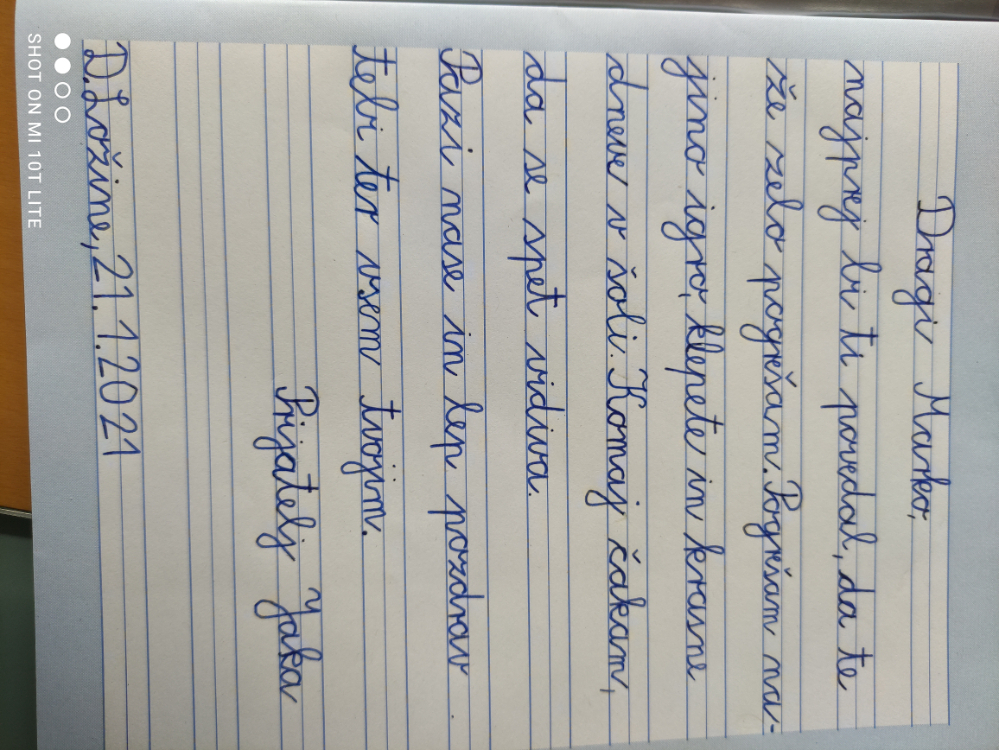 Dragi Marko,
najprej bi ti povedal, da te
že zelo pogrešam. Pogrešam na-
jino igro, klepete in krasne
dneve v šoli. Komaj čakam,
da se spet vidiva.
Pazi nase in lep pozdrav
tebi ter vsem tvojim.
Prijatelj Jaka
D. Ložine, 21. 1. 2021
SHOT ON MI 10T LITE